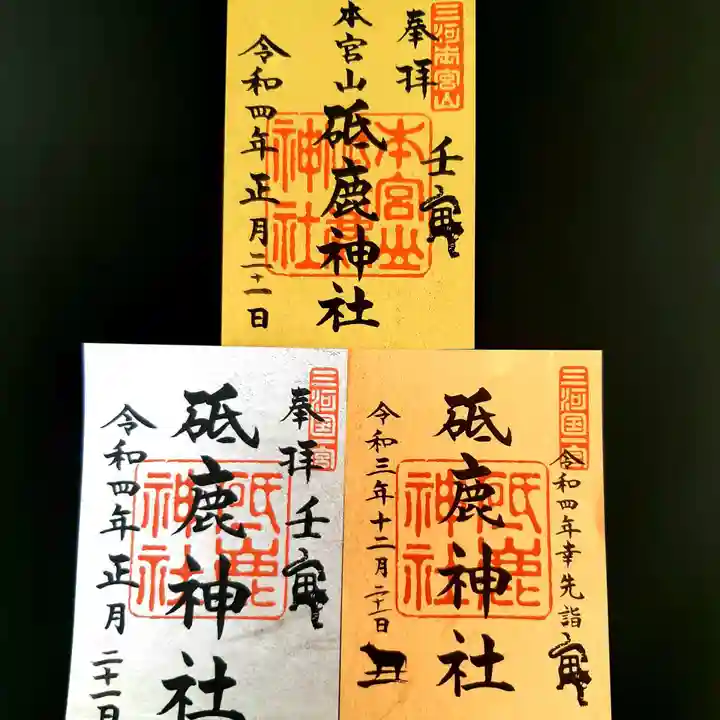 三河本宮山
奉拝
壬寅
本宮山
砥鹿神社
令和四年正月二十一日
三河国一宮
奉拝
壬寅
砥鹿神社
砥鹿神社
令和四年正月二十一日
三河国一宮
令和四年幸先詣
寅
砥鹿神社
砥鹿神社
令和三年十二月二十一日
丑